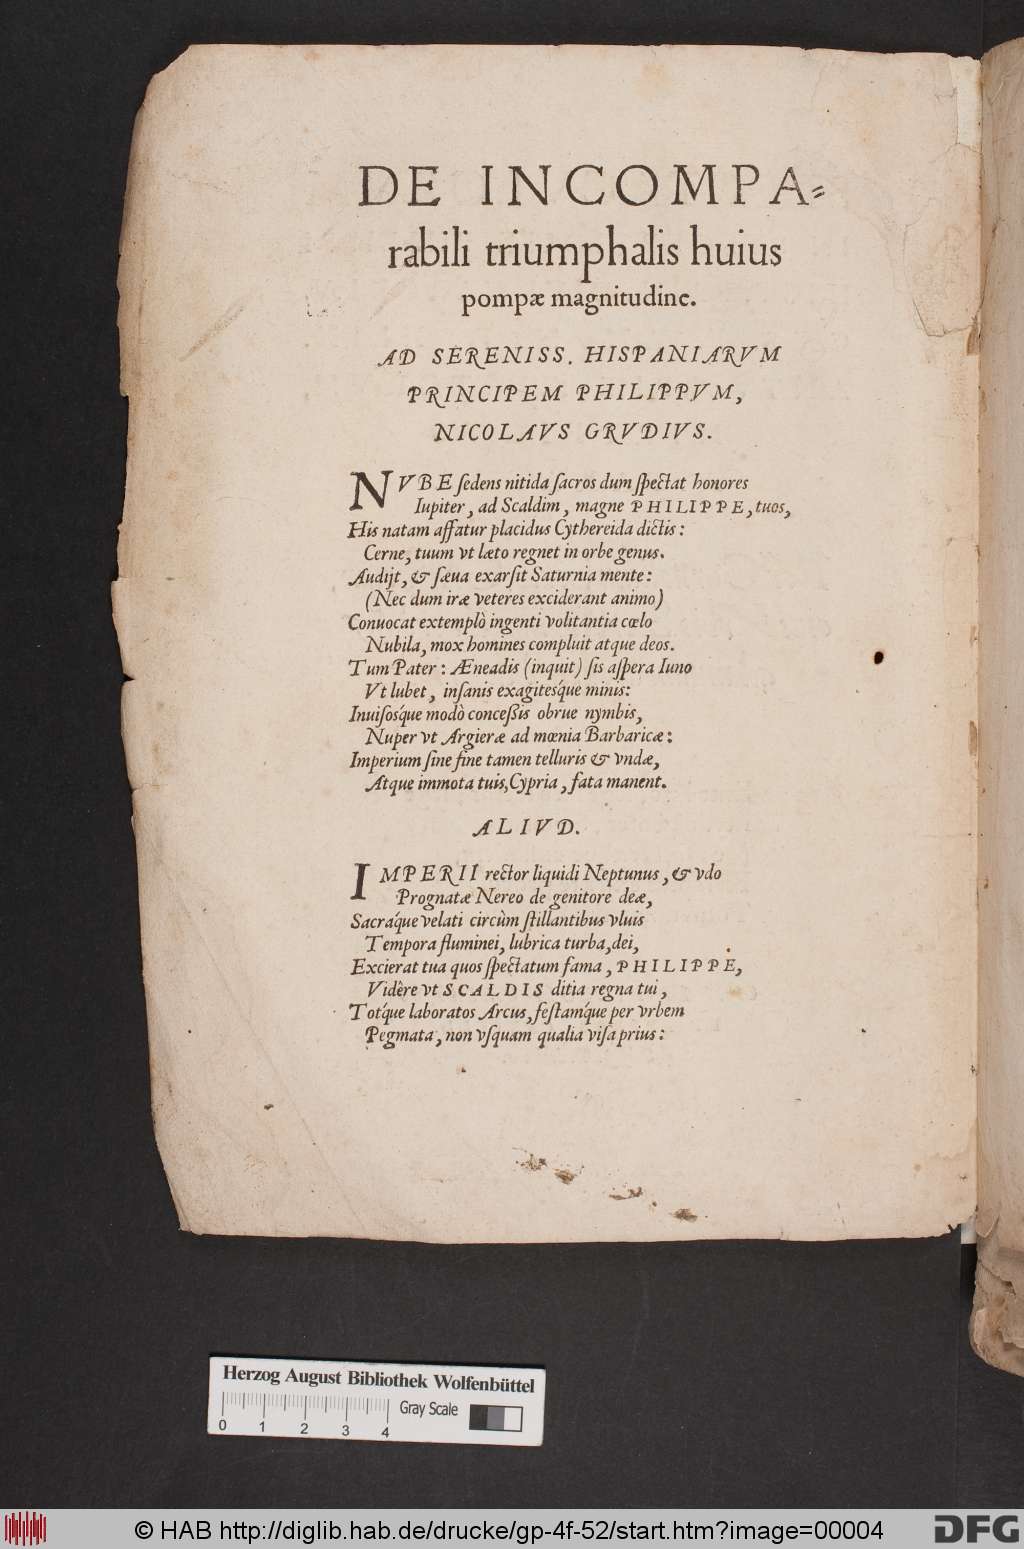 DE INCOMPA⸗
rabili triumphalis huius
pompæ magnitudine.
AD SERENISS. HISPANIARVM
PRINCIPEM PHILIPPVM,
NICOLAVS GRVDIVS.
NVBE ſedens nitida ſacros dum ſpectat honores
Iupiter, ad Scaldim, magne PHILIPPE, tuos,
His natam affatur placidus Cythereida dictis:
Cerne, tuum vt læto regnet in orbe genus.
Audijt, & ſæua exarſit Saturnia mente:
(Nec dum iræ veteres exciderant animo)
Conuocat extemplò ingenti volitantia cœlo
Nubila, mox homines compluit atque deos.
Tum Pater: Æneadis (inquit) ſis aſpera Iuno
Vt lubet, inſanis exagiteśque minis:
Inuiſośque modò conceßis obrue nymbis,
Nuper vt Argieræ ad mœnia Barbaricæ:
Imperium ſine fine tamen telluris & vndæ,
Atque immota tuis, Cypria, fata manent.
ALIVD.
IMPERII rector liquidi Neptunus, & vdo
Prognatæ Nereo de genitore deæ,
Sacráque velati circùm ſtillantibus vluis
Tempora fluminei, lubrica turba, dei,
Excierat tua quos ſpectatum fama, PHILIPPE,
Vidêre vt SCALDIS ditia regna tui,
Tot́que laboratos Arcus, feſtaḿque per vrbem
Pegmata, non vſquam qualia viſa prius:
Herzog August Bibliothek Wolfenbüttel
Gray Scale
0 1 2 3 4
© HAB http://diglib.hab.de/drucke/gp-4f-52/start.htm?image=00004
DFG